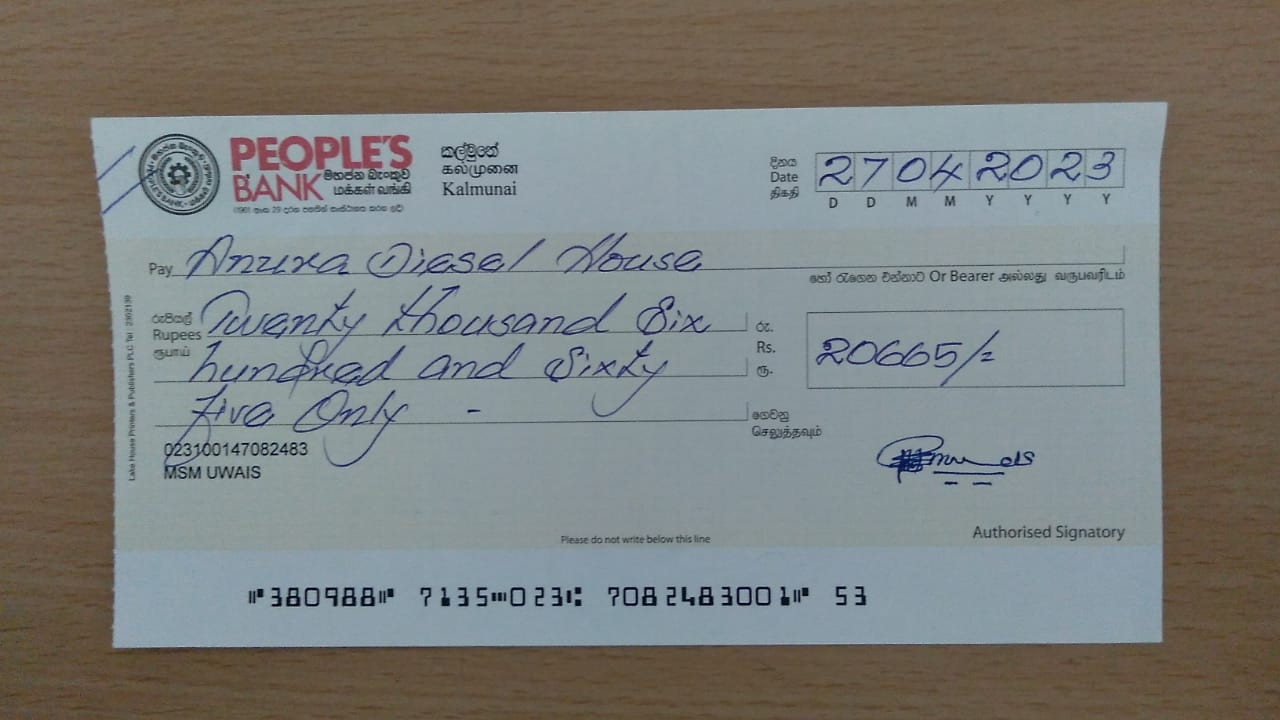 PEOPLE'S
BANK මහජන බැංකුව
மக்கள் வங்கி
(1961 අංක 29 දරන පනතින් සංස්ථාපිත කරන ලදී)
කල්මුනේ
கல்முனை
Kalmunai
දිනය
Date
திகதி
27042023
D D M M Y Y Y Y
Pay Anura Diesel House
හෝ රැගෙන එන්නාට Or Bearer அல்லது வருபவரிடம்
රුපියල්
Rupees Twenty thousand Six
ரூபாய் hundred and Sixty
Five Only -
රු.
Rs. 20665/=
ரூ.
ගෙවනු
செலுத்தவும்
023100147082483
MSM UWAIS
Lake House Printers & Publishers PLC Tel : 2302139
Authorised Signatory
Please do not write below this line
⑈380988⑈ 7135⑉023⑆ 7082483001⑈ 53